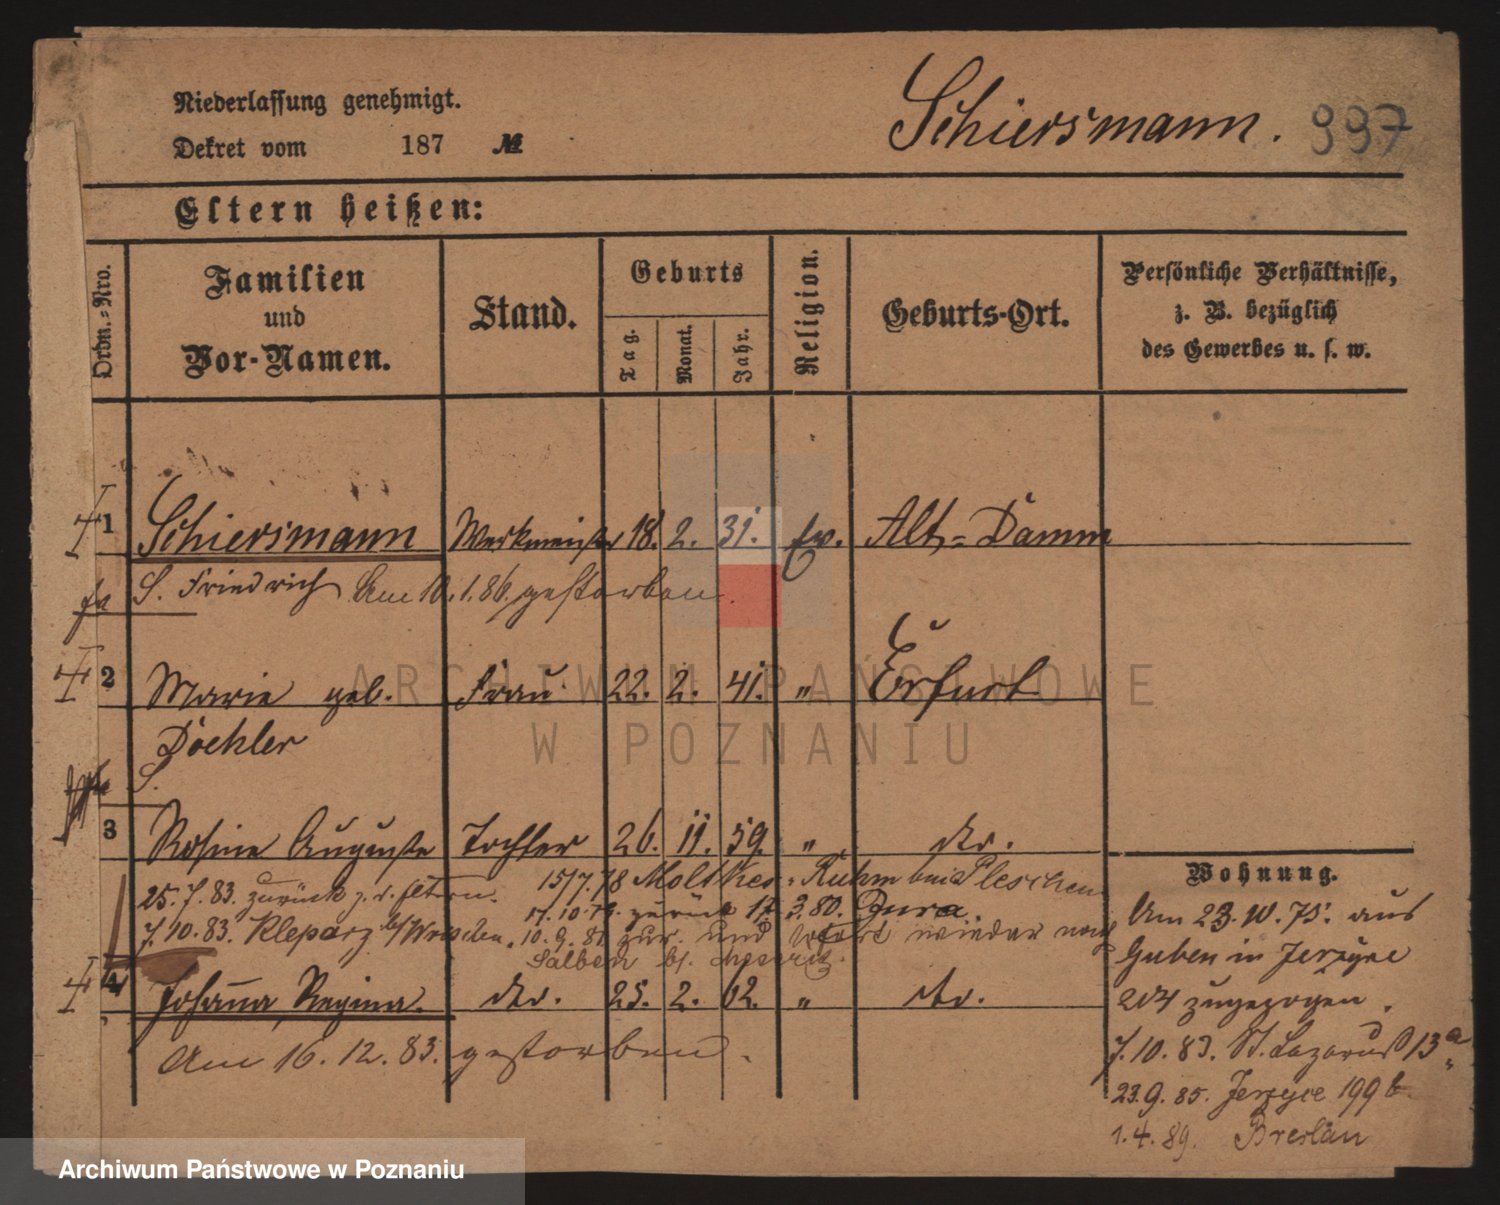 Niederlassung genehmigt.
Dekret vom 187 №
Schiersmann. 997
Eltern heißen:
Ordn.-Nro.
Familien
und
Vor-Namen.
Stand.
Geburts
Tag.
Monat.
Jahr.
Religion.
Geburts-Ort.
Persönliche Verhältnisse,
z. B. bezüglich
des Gewerbes u. s. w.
1 Schiersmann Werkmeister 18. 2. 31. Ev. Alt-Damm
S. Friedrich Am 10.1.86. gestorben.
2 Marie geb. Frau 22. 2. 41. " Erfurt
Döehler
S.
3 Rosine Auguste Tochter 26. 11. 59. " dto.
25.7.83. zurück z. d. Eltern. 15/7.78 Moltkes-Ruhm bei Pleschen
17.10.79. zurück 17.3.80. Gura.
7.10.83. Kleparz b/Wreschen. 10.9.81 zur. und wieder nach
Salben b/.
4 Johanna, Regina. dto. 25. 2. 62. " dto.
Am 16.12.83. gestorben.
Wohnung.
Am 23.10.75. aus
Guben in Jerzyce
204 zugezogen.
7.10.83. St. Lazarus 13a
23.9.85. Jerzyce 199b.
1.4.89. Breslau
ARCHIWUM PAŃSTWOWE
W POZNANIU
Archiwum Państwowe w Poznaniu